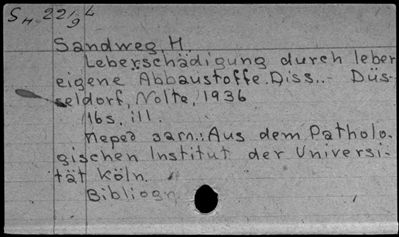 Sн 22/9 4
Sandweg, H.
Leberschädigung durch leber
eigene Abbaustoffe. Diss.- Düs-
seldorf, Nolte, 1936
16s, ill.
Перед загл.: Aus dem Patholo-
gischen Institut der Universi-
tät Köln.
Bibliogr.